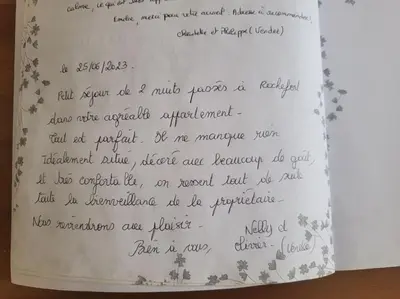 calme, ce qui est très
Emilie, merci pour votre accueil. Adresse à recommander,
et Philippe (Vendée)
le 25/06/2023.
Petit séjour de 2 nuits passés à Rochefort
dans votre agréable appartement.
Tout est parfait. Il ne manque rien
Idéalement situé, décoré avec beaucoup de goût,
et très confortable, on ressent tout de suite
toute la bienveillance de la propriétaire.
Nous reviendrons avec plaisir.
Bien à vous,
Nelly et
Olivier. (Vendée)